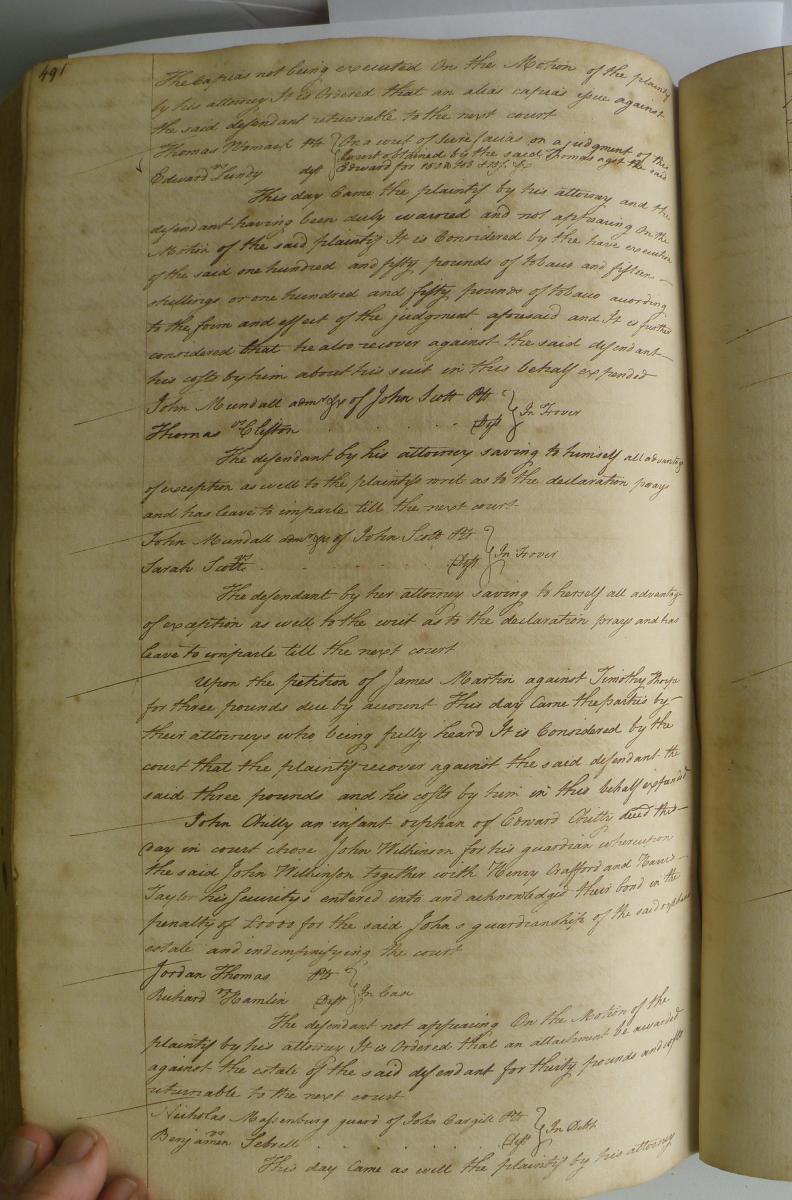 491
The Capias not being executed On the Motion of the plaintif
by his attorney It is Ordered that an alias capias issue against
the said defendant returnable to the next court
Thomas Womack Plt } On a writ of Scire facias on a judgment of this
vs Court obtained by the said Thomas agst the said
Edward Lundy deft Edward for
This day Came the plaintif by his attorney and the
defendant having been duly warned and not appearing On the
Motion of the said plaintif It is Considered by the have execution
of the said one hundred and fifty pounds of tobaco and fifteen
shillings or one hundred and fifty pounds of tobaco according
to the form and effect of the judgment aforesaid and It is further
considered that he also recover against the said defendant
his costs by him about his suit in this behalf expended
John Mundall admr &c of John Scott Plt } In Trover
vs
Thomas Clifton . . . . . Deft
The defendant by his attorney saving to himself all advantag
of exception as well to the plaintifs writ as to the declaration prays
and has leave to imparle till the next court
John Mundall admr &c of John Scott Plt } In Trover
vs
Sarah Scott . . . . . Deft
The defendant by her attorney saving to herself all advantag
of exception as well to the writ as to the declaration prays and has
leave to imparle till the next court
Upon the petition of James Martin against Timothy Thorp
for three pounds due by account This day Came the parties by
their attorneys who being fully heard It is Considered by the
court that the plaintif recover against the said defendant the
said three pounds and his costs by him in this behalf expended
John Chilly an infant orphan of Edward Chilly deced this
day in court chose John Wilkinson for his guardian whereupon
the said John Wilkinson together with Henry Crafford and
Taylor his Securitys entered into and acknowledged their bond in the
penalty of for the said Johns guardianship of the said orphans
estate and indempnifying the court
Jordan Thomas Plt } In Case
vs
Richard Hamlin Deft
The defendant not appearing On the Motion of the
plaintif by his attorney It is Ordered that an attachment be awarded
against the estate of the said defendant for thirty pounds and costs
returnable to the next court
Nicholas Massenburg guard of John Cargill Plt } In Debt
vs
Benjamen Sebrell . . . . . Deft
This day Came as well the plaintif by his attorney